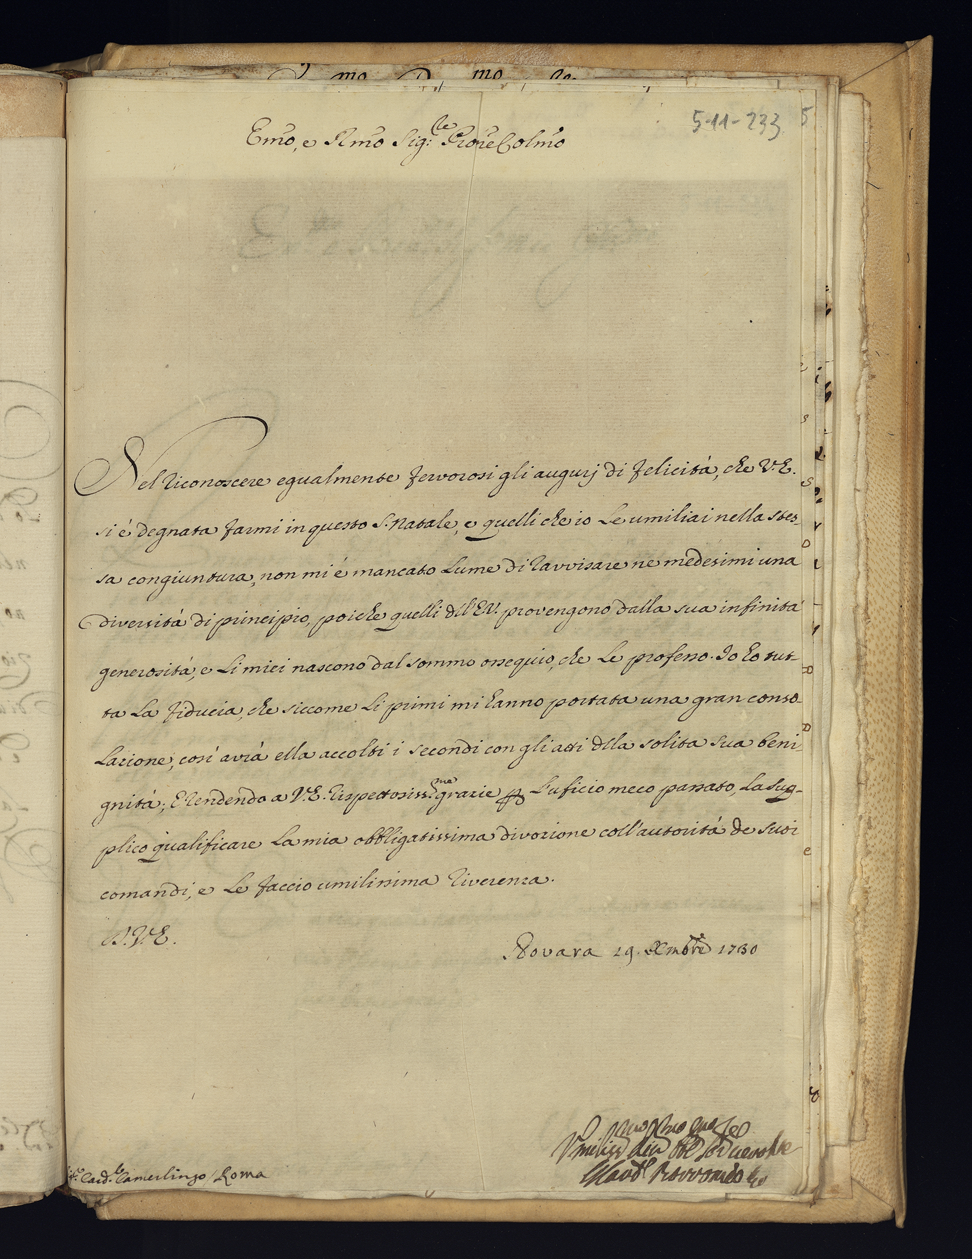 5-11-233
Emo, e Rmo Sig:re Prone Colmo
Nel riconoscere egualmente fervorosi gli augurj di felicitá, che V.E.
si é degnata farmi in questo S. Natale, e quelli che io Le umiliai nella stes-
sa congiuntura, non mi é mancato Lume di ravvisare ne medesimi una
diversitá di principio, poiche quelli dell'E.V. provengono dalla sua infinita
generositá, e Li miei nascono dal sommo ossequio, che Le professo. Io ho tut-
ta La fiducia, che siccome Li primi mi hanno portata una gran conso-
Lazione, cosí avrá ella accolti i secondi con gli atti della solita sua beni-
gnitá; E rendendo a V.E. rispettosiss:me grazie per L'uficio meco passato, La sup-
plico qualificare La mia obbligatissima divozione coll'autoritá de suoi
comandi, e Le faccio umilissima riverenza.
D. V.E.
Novara 29. Xmbre 1730
Umiliss
Card.le Borromeo
Card.le Camerlingo / Roma